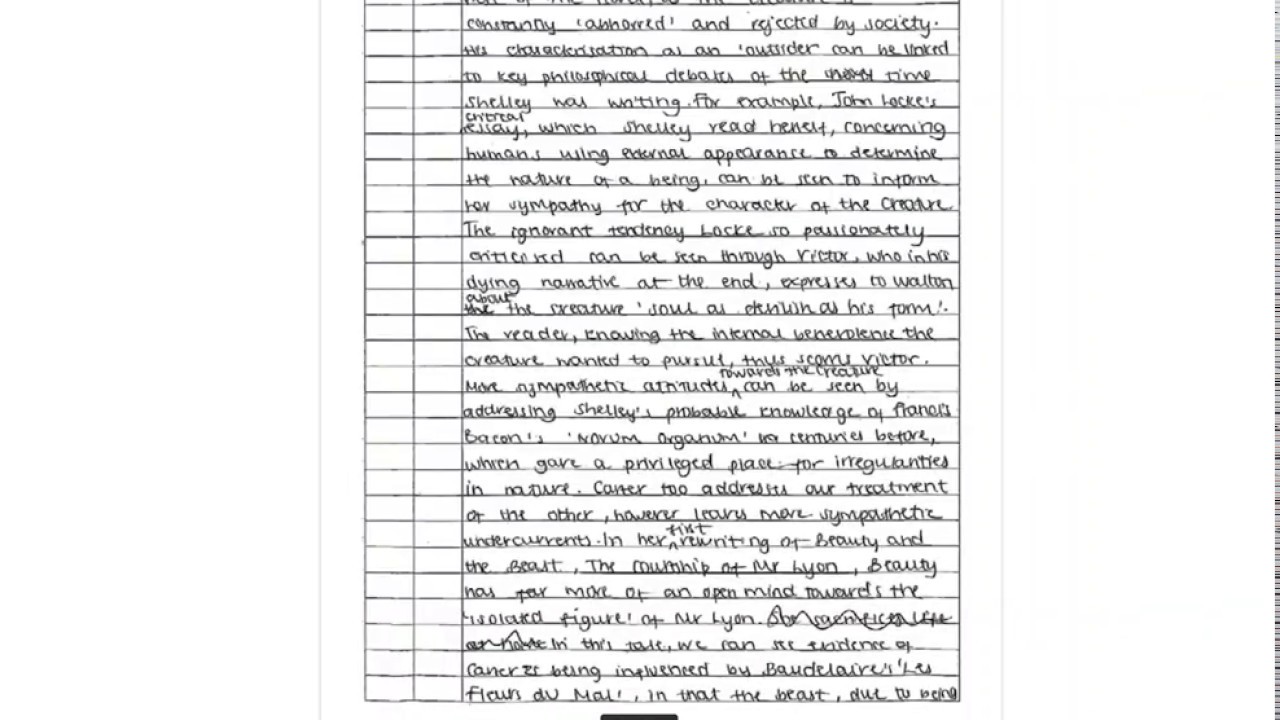 constantly 'abhorred' and rejected by society.
His characterisation as an 'outsider' can be linked
to key philosophical debates of the time
Shelley was writing. For example, John Locke's
critical
essay, which Shelley read herself, concerning
humans using external appearance to determine
the nature of a being, can be seen to inform
her sympathy for the character of the Creature.
The ignorant tendency Locke so passionately
criticised can be seen through Victor, who in his
dying narrative at the end, expresses to Walton
about
the the creature 'soul as devilish as his form'.
The reader, knowing the internal benevolence the
creature wanted to pursue, thus scorns Victor.
towards the creature
More sympathetic attitudes, can be seen by
addressing Shelley's probable knowledge of Francis
Bacon's 'Novum Organum' centuries before,
which gave a privileged place for irregularities
in nature. Carter too addresses our treatment
of the other, however leaves more sympathetic
first
undercurrents. In her rewriting of Beauty and
the Beast, The Courtship of Mr Lyon, Beauty
has far more of an open mind towards the
'isolated figure' of Mr Lyon.
In this tale, we can see evidence of
Carter being influenced by Baudelaire's 'Les
Fleurs du Mal', in that the beast, due to being